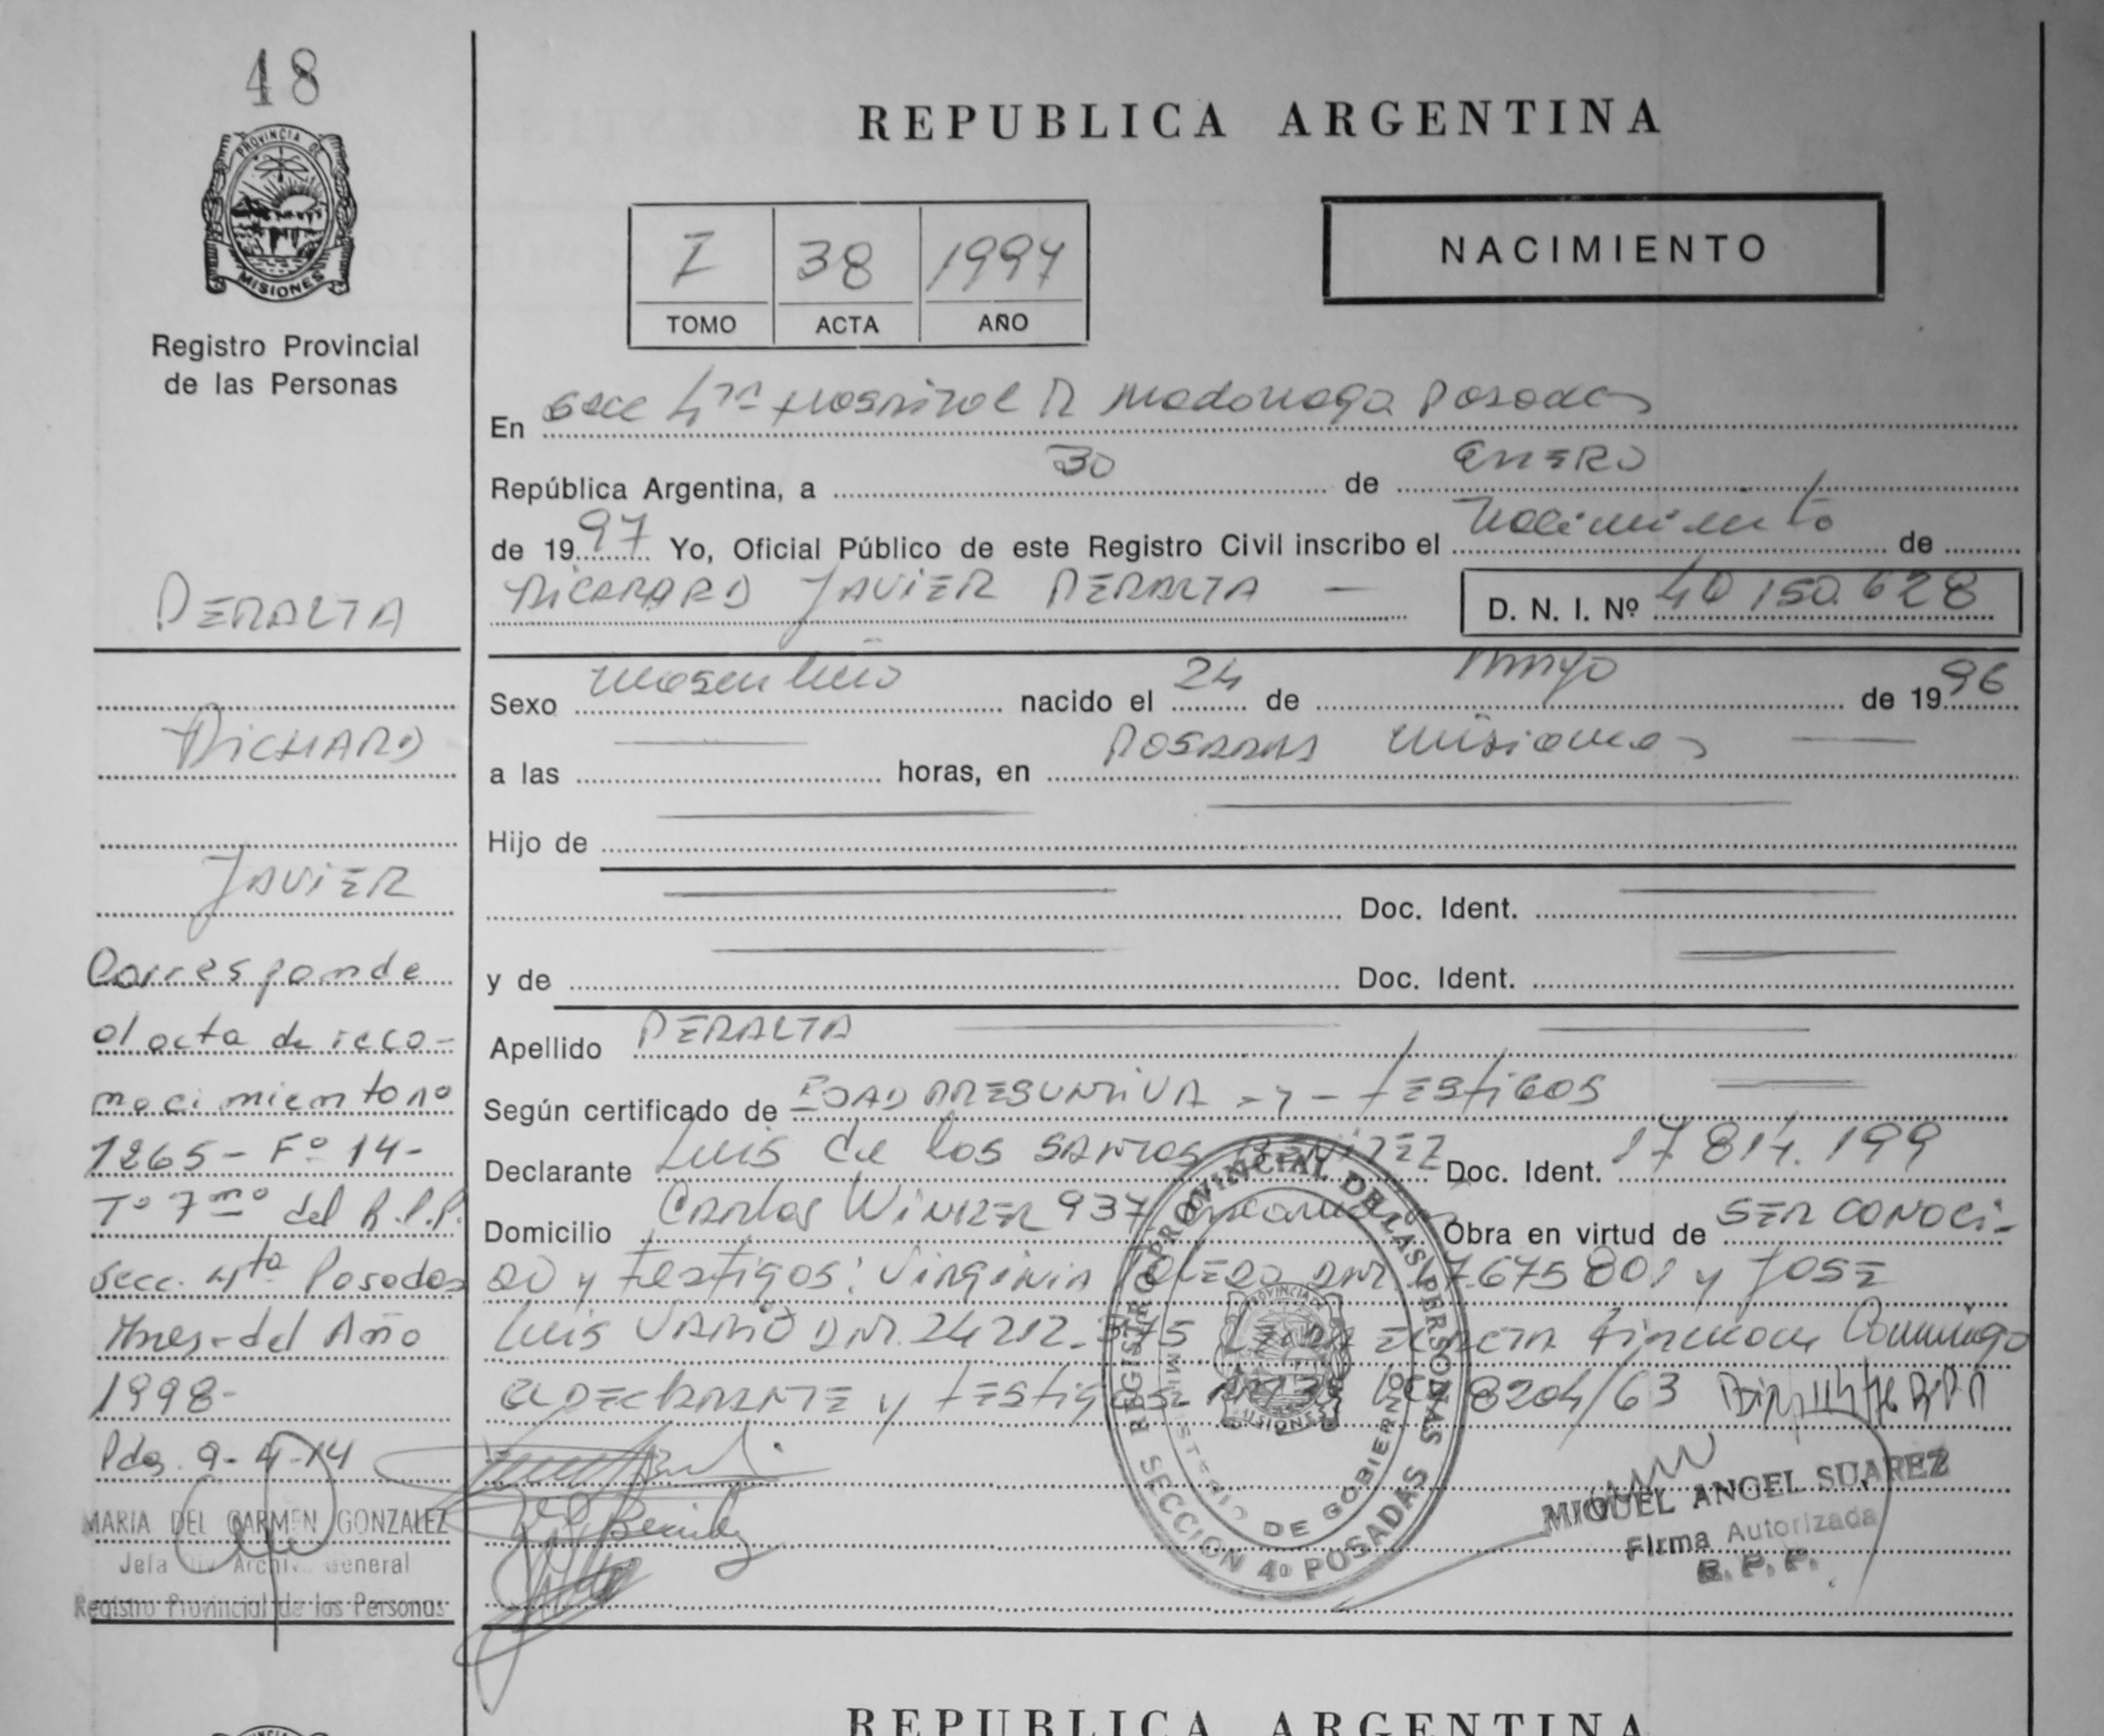 48
PROVINCIA DE
MISIONES
Registro Provincial
de las Personas
PERALTA
RICHARD
JAVIER
Corresponde
al acta de reco-
nocimiento nº
1265 - Fº 14 -
Tº 7mo del R.P.P.
Secc. 4ta Posadas
Mnes. del Año
1998 -
Pdas. 9-4-14
MARIA DEL CARMEN GONZALEZ
Jefa Div Archi. General
Registro Provincial de las Personas
REPUBLICA ARGENTINA
I 38 1997
TOMO ACTA AÑO
NACIMIENTO
En Secc 4ta Hospital R Madariaga Posadas
República Argentina, a 30 de ENERO
de 1997 Yo, Oficial Público de este Registro Civil inscribo el Nacimiento de
RICHARD JAVIER PERALTA — D. N. I. Nº 40 150.628
Sexo masculino nacido el 24 de mayo de 1996
a las — horas, en POSADAS Misiones —
Hijo de
Doc. Ident.
y de Doc. Ident.
Apellido PERALTA
Según certificado de EDAD PRESUNTIVA - y - TESTIGOS
Declarante Luis de los SANTOS BENITEZ Doc. Ident. 17 814.199
Domicilio Carlos 937 Obra en virtud de SER CONOCI-
DO y testigos: Virginia DNI 675801 y JOSE
Luis DNI. 24212.375 LEIDA EL ACTA firman Conmigo
el DECLARANTE y testigos 8204/63
REGISTRO PROVINCIAL DE LAS PERSONAS
MINISTERIO DE GOBIERNO
PROVINCIA DE
MISIONES
SECCION 4º POSADAS
MIGUEL ANGEL SUAREZ
Firma Autorizada
R. P. P.
REPUBLICA ARGENTINA